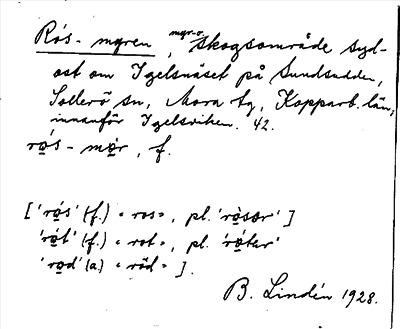 Rós-myren, myr- o. skogsområde syd-
ost om Igelsnäset på Sundsudden,
Sollerö sn, Mora tg, Kopparb. län,
innanför Igelsviken. 42.
ro̱s-mö̱r, f.
['ro̱s' (f.) "ros", pl. 'rò̱sər']
'ro̱t' (f.) "rot", pl. 'rò̱tər'
'ro̱d' (a.) "röd"].
B. Lindén 1928.